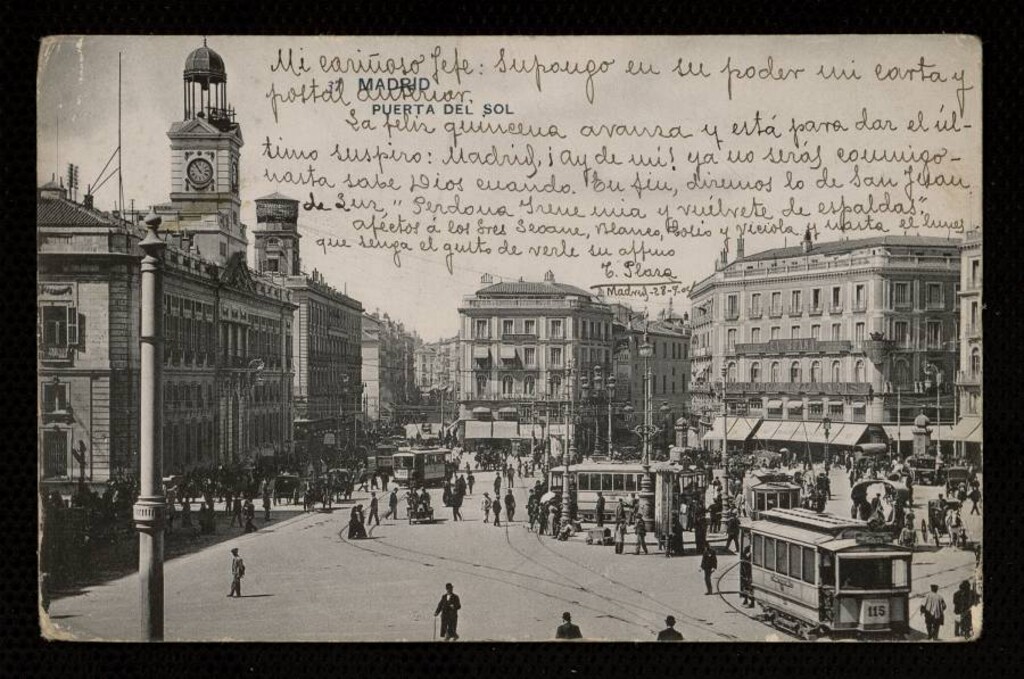 Mi cariñoso Jefe: Supongo en su poder mi carta y
postal anterior.
37 MADRID
PUERTA DEL SOL
La feliz quincena avansa y está para dar el úl-
timo suspiro: Madrid, ¡ay de mi! ya no serás conmigo-
hasta sabe Dios cuando. En fin, diremos lo de San Juan
de Luz, "Perdona Irene mia y vuélvete de espaldas".
afectos á los Sres Seoane, Blanco, y hasta el lunes
que tenga el gusto de verle su affmo
E. Plaza
Madrid-28-9-
115